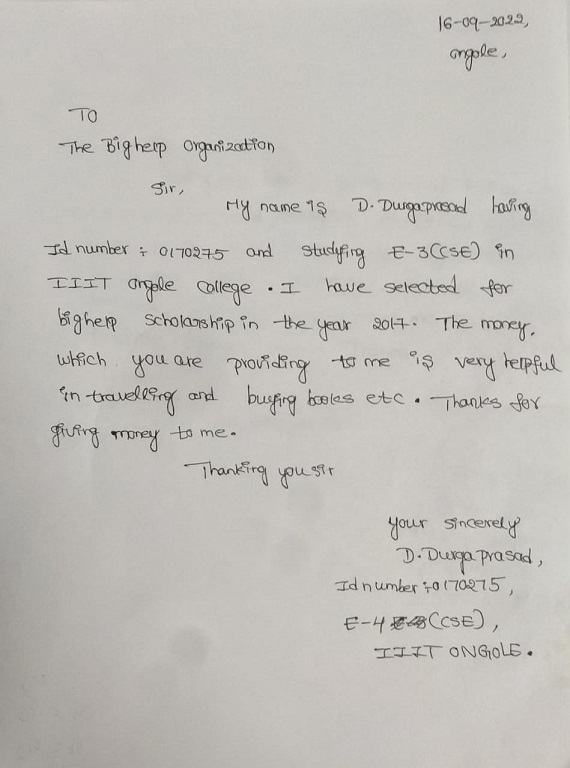 16-09-2022,
ongole,
TO
The Bighelp Organization
Sir,
My name is D. Durgaprasad having
Id number : 0170275 and studying E-3(CSE) in
IIIT ongole college. I have selected for
bighelp scholarship in the year 2017. The money,
which you are providing to me is very helpful
in travelling and buying books etc. Thanks for
giving money to me.
Thanking you sir
your sincerely
D. Durga prasad,
Id number :0170275,
E-4 (CSE),
IIIT ONGOLE.